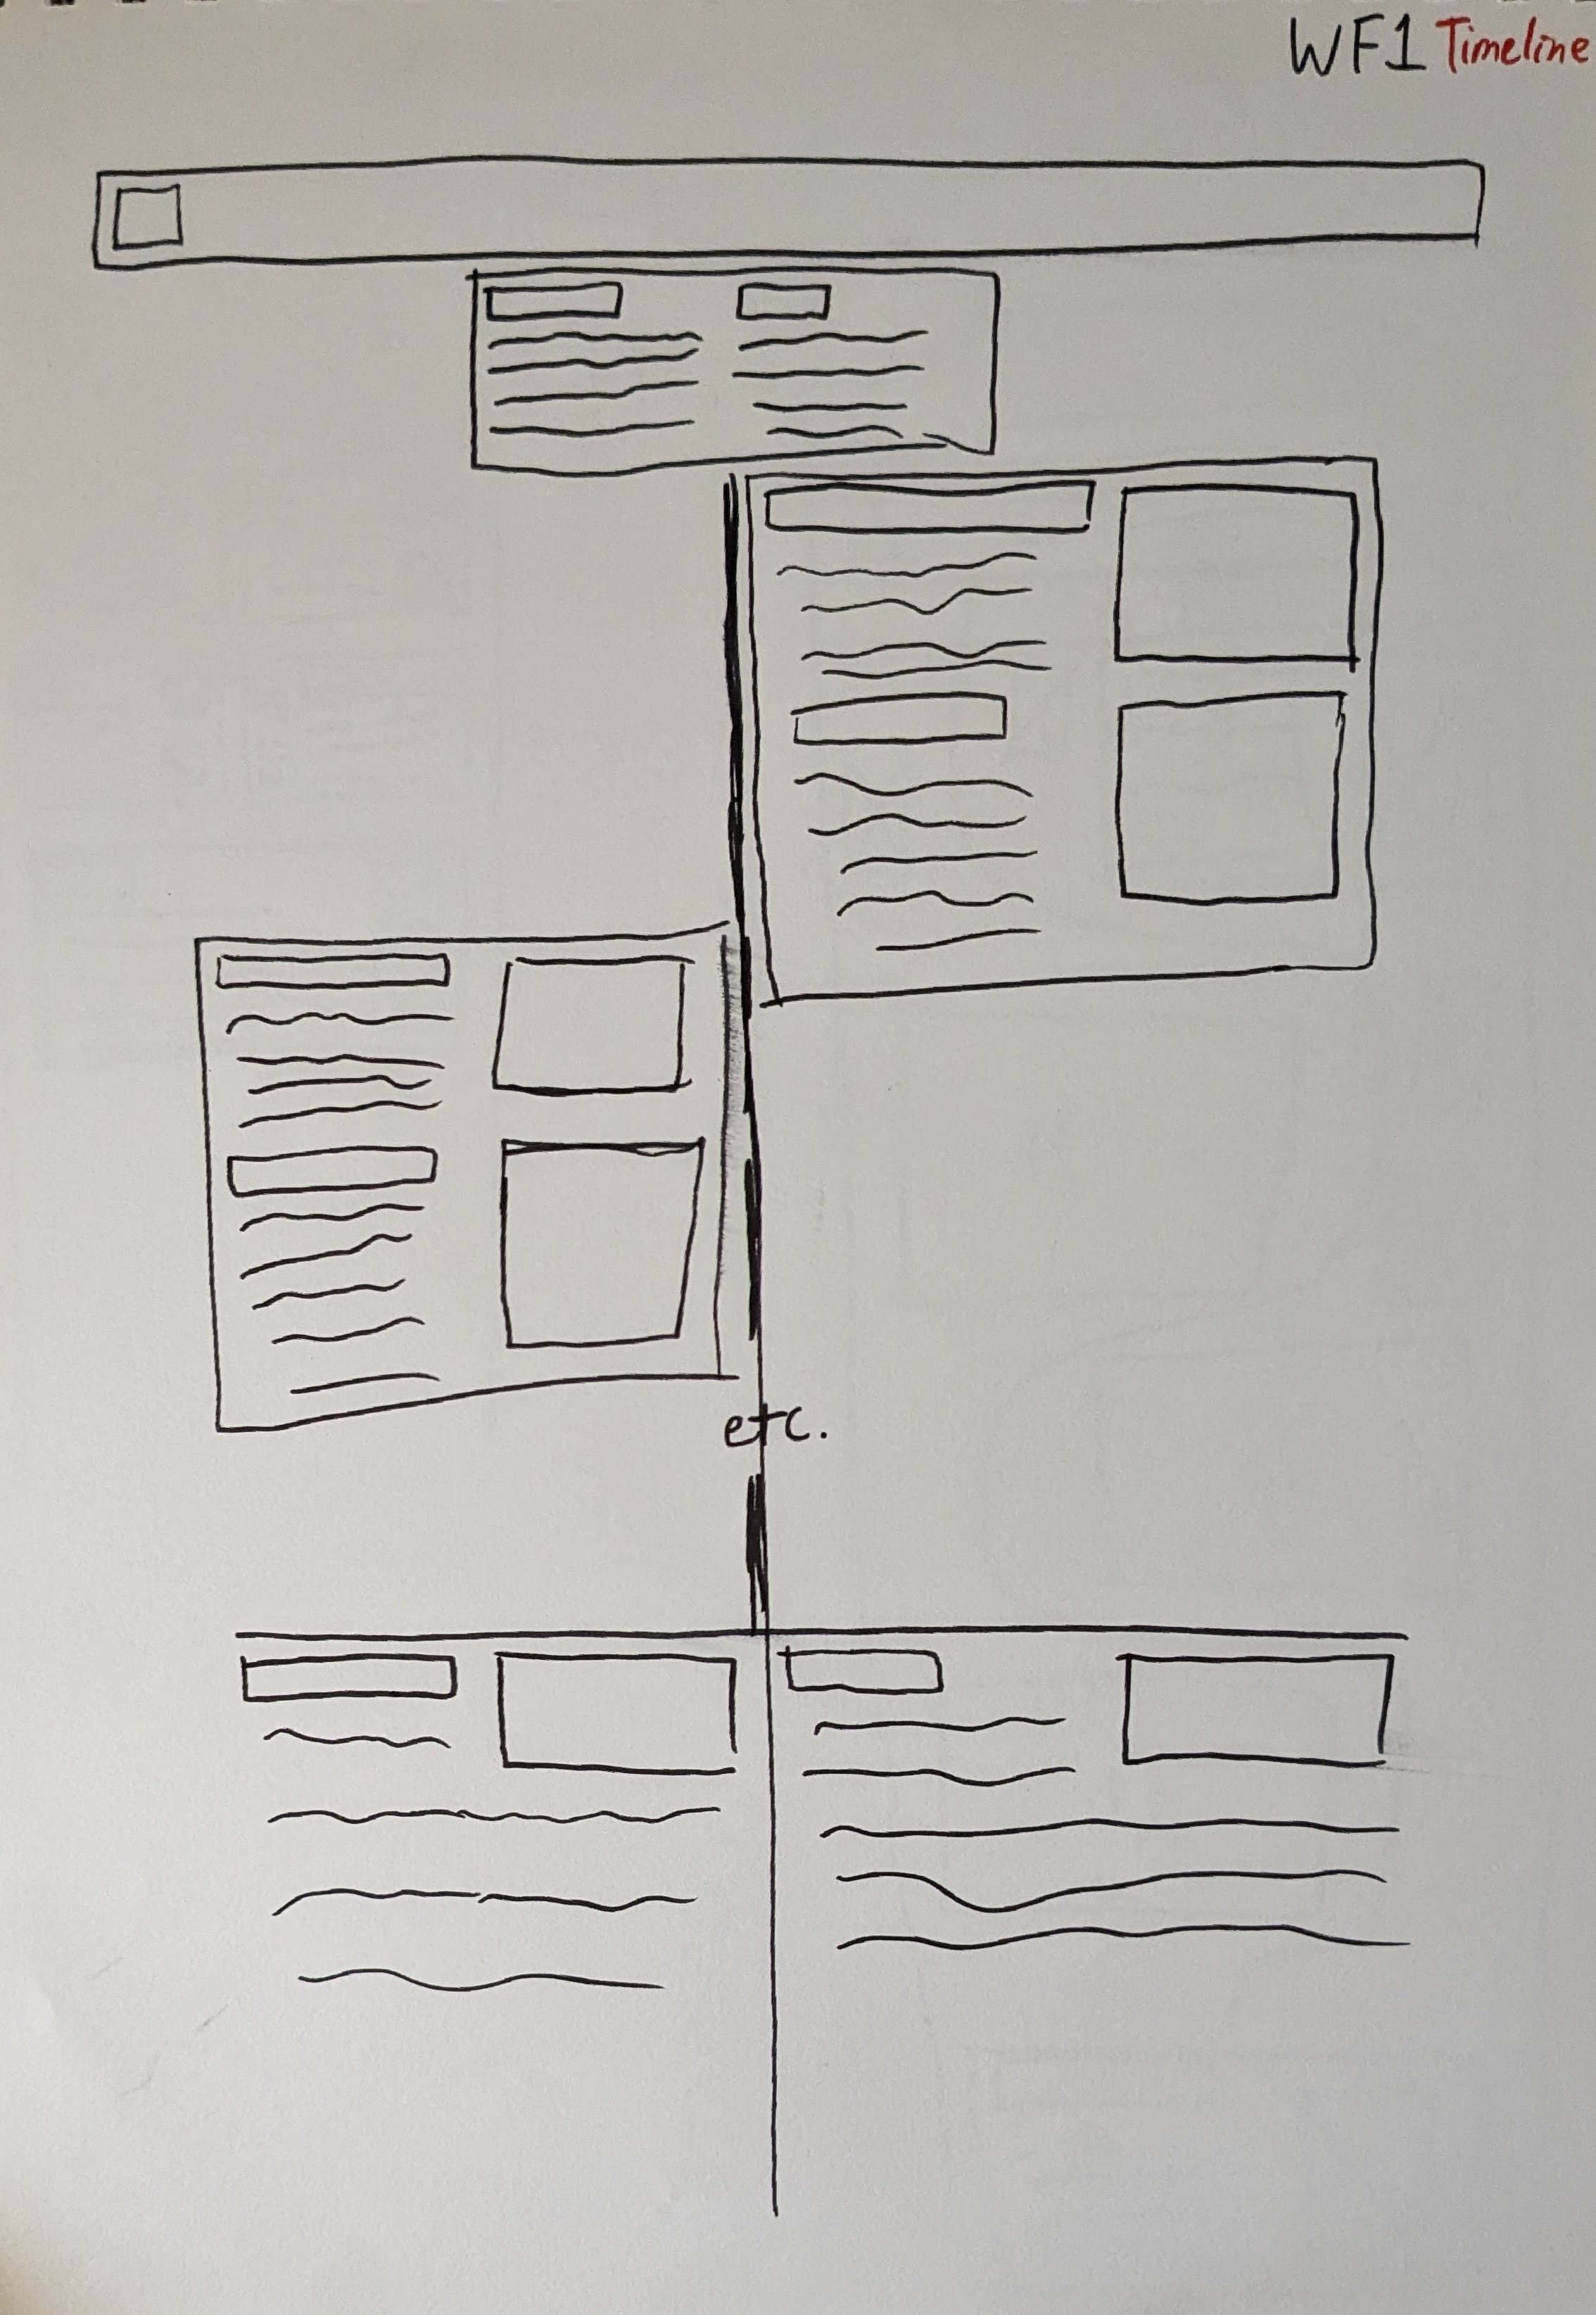 WF1 Timeline
etc.